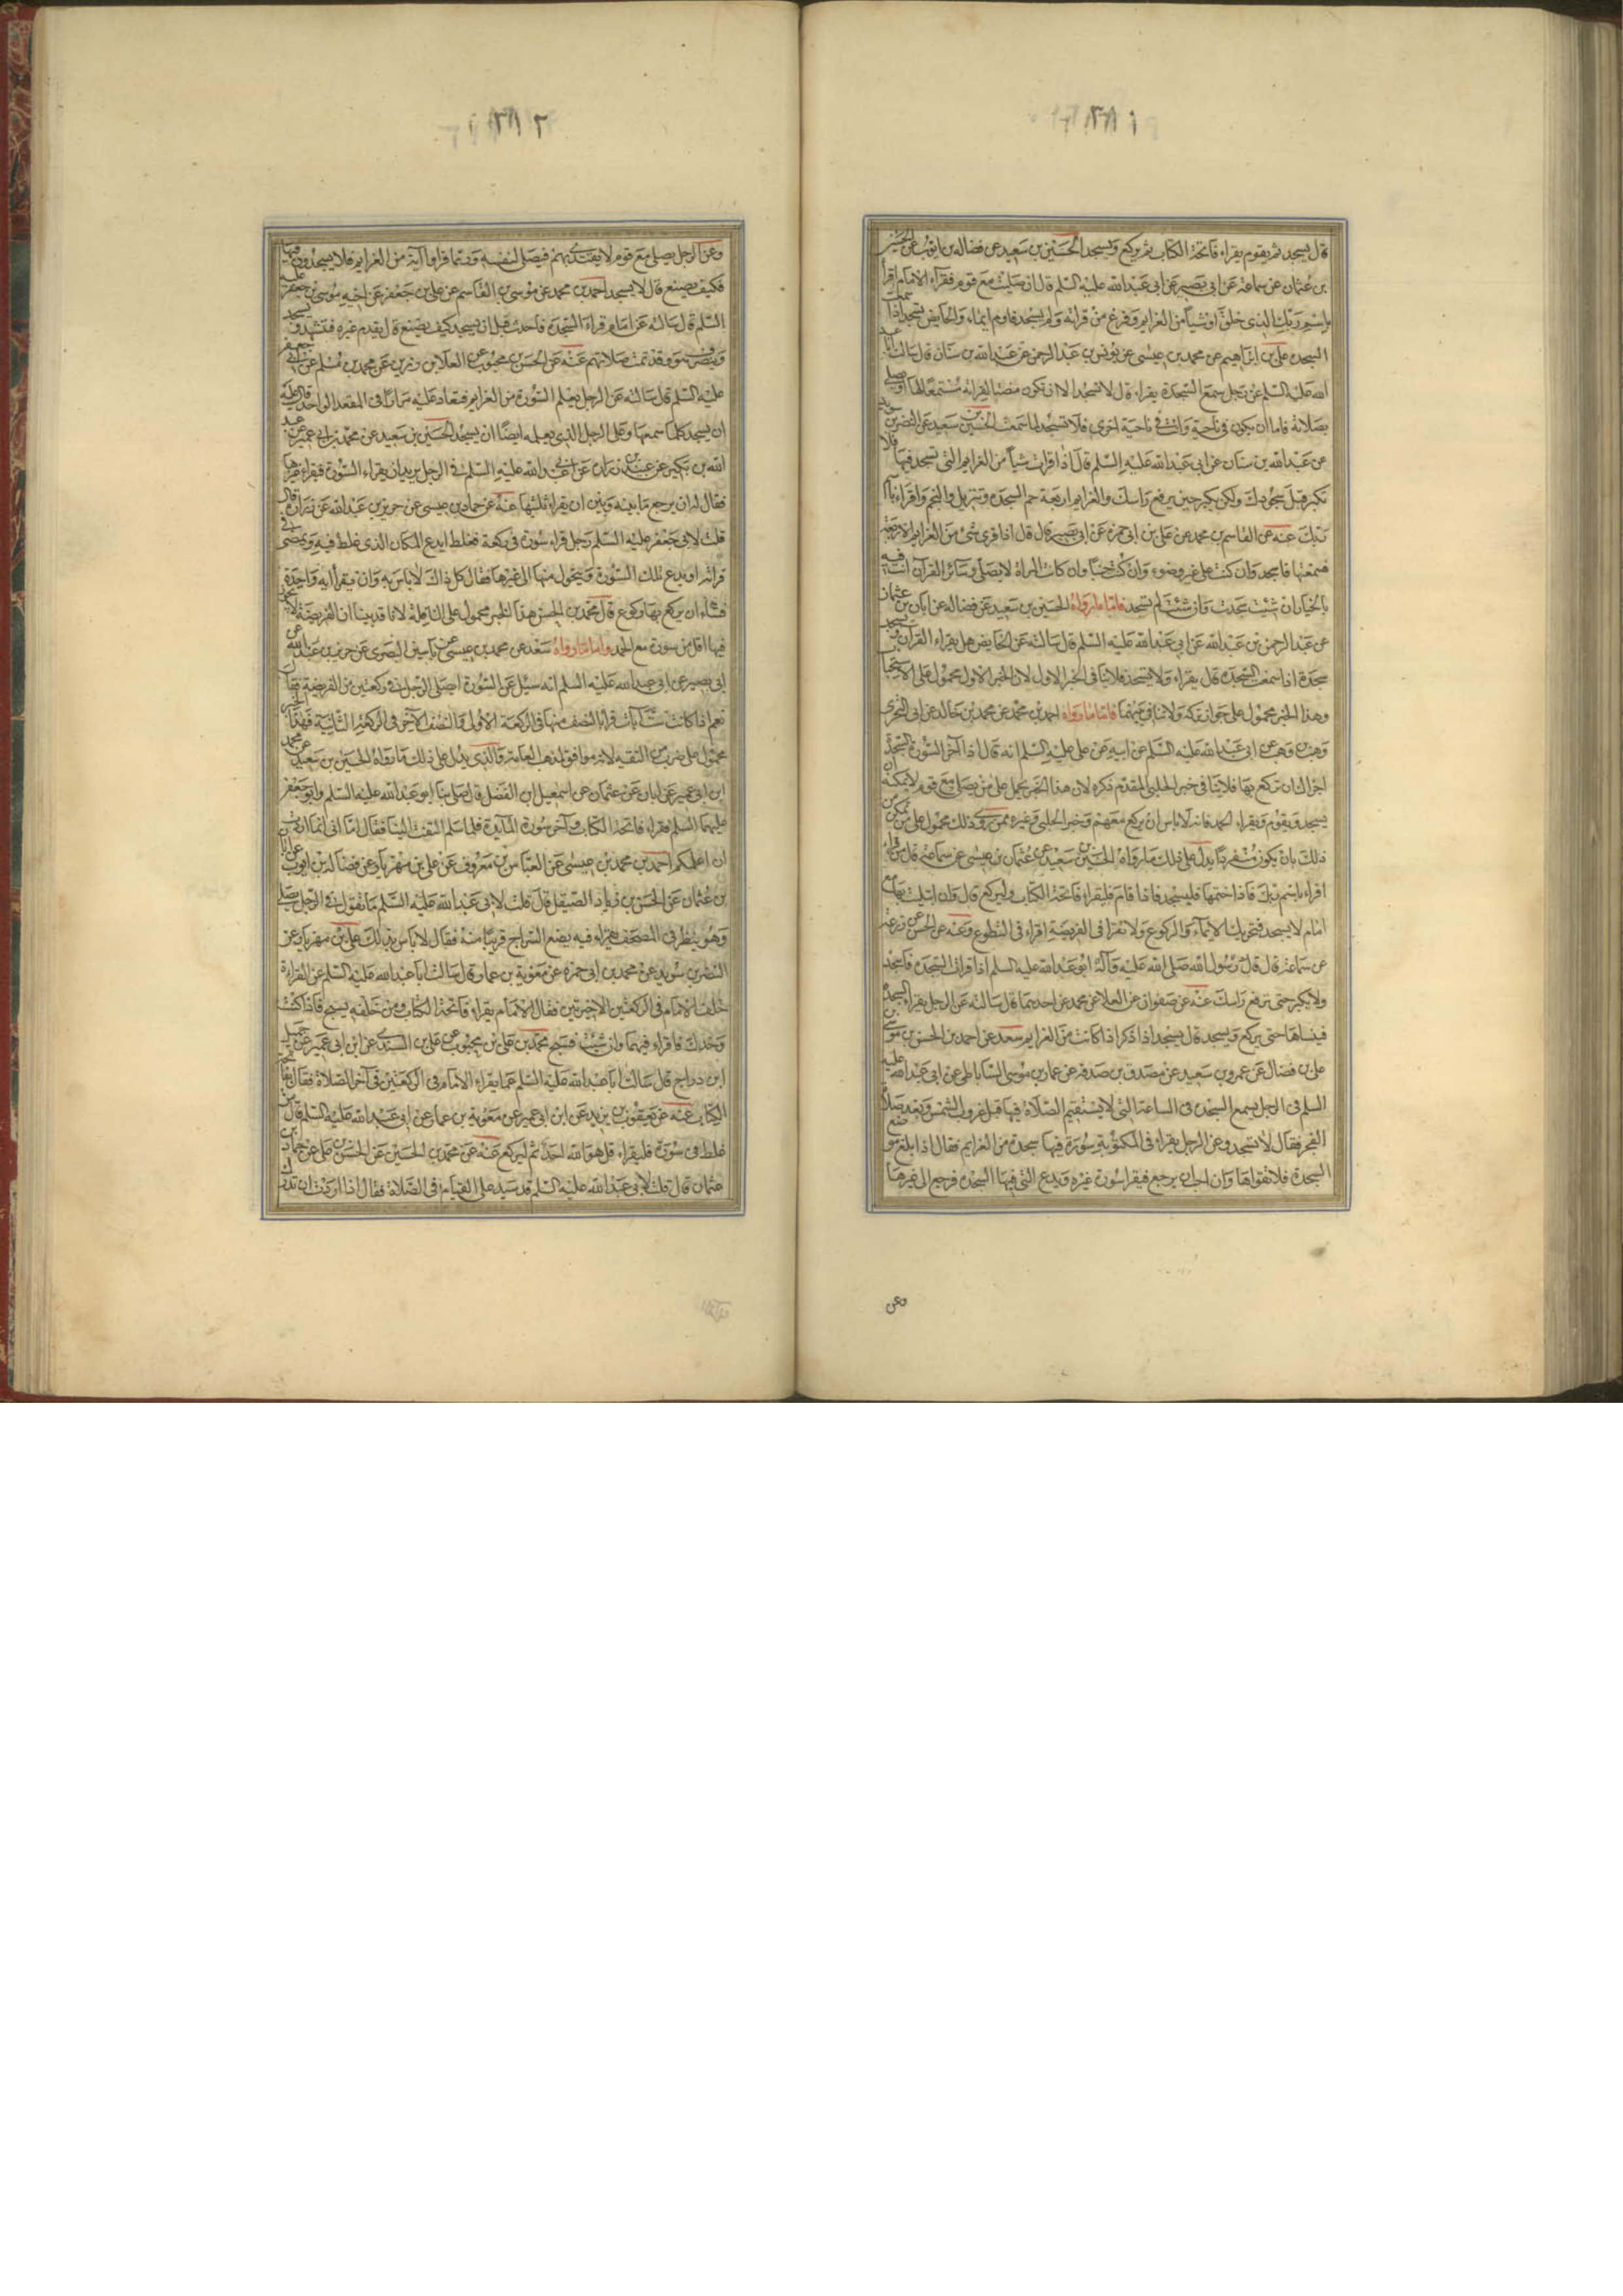 ١٣٨١
قال يسجد ثم يقوم يقراء فاتحة الكتاب ثم يركع ويسجد الحسين بن سعيد عن فضاله بن ايوب عن الحسين
بن عثمان عن سماعة عن ابي بصير عن ابي عبد الله عليه السلم قال ان صليت مع قوم فقراء الامام اقرأ
باسم ربك الذي خلق او شيأ من العزايم وفرغ من قرائته ولم يسجد فاوم ايماء والحايض تسجد اذا سمعت
السجدة علي بن ابراهيم عن محمد بن عيسى عن يونس بن عبد الرحمن عن عبد الله بن سنان قال سالت ابا عبد
الله عليه السلم عن رجل سمع السجدة يقراء قال لا تسجد الا ان تكون منصتا لقرائته مستمعا لها او يصلي
بصلاته فاما ان يكون في ناحية وانت في ناحية اخرى فلا تسجد لما سمعت الحسين بن سعيد عن النضر بن سويد
عن عبد الله بن سنان عن ابى عبد الله عليه السلم قال اذا قرات شيأ من العزايم التي تسجد فيها فلا
تكبر قبل سجودك ولكن تكبر حين يرفع راسك والعزايم اربعة حم السجدة وتنزيل والنجم واقراء باسم
ربك عنه عن القاسم بن محمد عن علي بن ابي حمزة عن ابي بصير قال قال اذا قرى شى من العزايم الاربعة
فسمعتها فاسجد وان كنت على غير وضوء وان كنت جنبا وان كانت المراة لا تصلي وسائر القرآن انت فيه
بالخيار ان شئت سجدت وان شئت لم تسجد فاما ما رواه الحسين بن سعيد عن فضاله عن ابان بن عثمان
عن عبد الرحمن بن عبد الله عن ابي عبد الله عليه السلم قال سالته عن الحايض هل يقراء القرآن وتسجد
سجدة اذا سمعت السجدة قال يقراء ولا تسجد فلا ينافي الخبر الاول لان الخبر الاول محمول على الاستحباب
وهذا الخبر محمول على جواز تركه ولا تنافي بينهما فاما ما رواه احمد بن محمد عن محمد بن خالد عن ابى البخترى
وهب بن وهب عن ابي عبد الله عليه السلم عن ابيه عن علي عليه السلم انه قال اذا كان آخر السورة السجدة
اجزاك ان تركع بها فلا ينافي خبر الحلبي المقدم ذكره لان هذا الخبر يحمل على من يصلي مع قوم لا يمكنه ان
يسجد ويقوم ويقراء الحمد فانه لا باس ان يركع معهم وخبر الحلبي وغيره ممن روى ذلك محمول على من تمكن من
ذلك بان يكون منفردا يدل على ذلك ما رواه الحسين بن سعيد عن عثمان بن عيسى عن سماعة قال من قراء
اقراء باسم ربك فاذا ختمها فليسجد فاذا قام فليقراء فاتحة الكتاب وليركع قال وان ابتليت بها مع
امام لا يسجد فتجزيك الايماء والركوع ولا تقرا في الفريضة اقراء في التطوع وعنه عن الحسن عن زرعة
عن سماعة قال قال رسول الله صلى الله عليه وآله ابو عبد الله عليه السلم اذا قرات السجدة فاسجد
ولا تكبر حتى ترفع راسك عنه عن صفوان عن العلا عن محمد عن احدهما قال سالته عن الرجل يقراء السجدة
فينساها حتى يركع ويسجد قال يسجد اذا ذكر اذا كانت من العزايم سعد عن احمد بن الحسن بن موسى بن
علي بن فضال عن عمرو بن سعيد عن مصدق بن صدقة عن عمار بن موسى الساباطي عن ابي عبد الله عليه
السلم في الرجل يسمع السجدة في الساعة التي لا يستقيم الصلاة فيها قبل غروب الشمس وبعد صلاة
الفجر فقال لا تسجد وعن الرجل يقراء في المكتوبة سورة فيها سجدة من العزايم فقال اذا بلغ موضع
السجدة فلا تقراها وان احب ان يرجع فيقرا سورة غيره ويدع التي فيها السجدة فرجع الى غيرها
وعن
١٣٨٢
وعن الرجل يصلي مع قوم لا يقتدى بهم فيصلي لنفسه وربما قراوا آية من العزايم فلا يسجدون فيها
فكيف يصنع قال لا يسجد احمد بن محمد عن موسى بن القاسم عن علي بن جعفر عن اخيه موسى بن جعفر عليه
السلم قال سالته عن امام قراء السجدة فاحدث قبل ان يسجد كيف يصنع قال يقدم غيره فتشهد ويسجد
وينصرف هو وقد تمت صلاتهم عنه عن الحسن بن محبوب عن العلا بن رزين عن محمد بن مسلم عن ابي جعفر
عليه السلم قال سالته عن الرجل يعلم السورة من العزايم فتعاد عليه مرارا في المقعد الواحد قال عليه
ان يسجد كلما سمعها وعلى الرجل الذي يعلمه ايضا ان يسجد الحسين بن سعيد عن محمد بن ابي عمير عن عبد
الله بن بكير عن عبيد بن زرارة عن ابي عبد الله عليه السلم في الرجل يريد ان يقراء السورة فيقراء غيرها
فقال له ان يرجع ما بينه وبين ان يقراء ثلثيها عنه عن حماد بن عيسى عن حريز بن عبد الله عن زرارة قال
قلت لابي جعفر عليه السلم رجل قراء سورة في ركعة فغلط ايدع المكان الذي غلط فيه ويمضى في
قرائته او يدع تلك السورة ويتحول منها الى غيرها فقال كل ذلك لا باس به وان قرأ آية واحدة
فشاء ان يركع بها ركع قال محمد بن الحسن هذا الخبر محمول على النافلة لانا قد بينا ان الفريضة لا يجوز
فيها اقل من سورة مع الحمد واما ما رواه سعد عن محمد بن عيسى عن ياسين البصرى عن حريز بن عبد الله عن
ابي بصير عن ابي عبد الله عليه السلم انه سيل عن السورة ايصلي الرجل في ركعتين من الفريضة فقال
نعم اذا كانت ست آيات قرا بالنصف منها في الركعة الاولى والنصف الآخر في الركعة الثانية فهذا الخبر
محمول على ضرب من التقية لانه موافق لمذهب العامة والذى يدل على ذلك ما رواه الحسين بن سعيد عن محمد
ابن ابي عمير عن ابان عن عثمان عن اسمعيل ابن الفضل قال صلى بنا ابو عبد الله عليه السلم وابو جعفر
عليهما السلم فقراء فاتحة الكتاب وآخر سورة المائدة فلما سلم التفت الينا فقال اما اني انما اردت
ان اعلمكم احمد بن محمد بن عيسى عن العباس بن معروف عن علي بن مهزيار عن فضالة بن ايوب عن ابان
بن عثمان عن الحسن بن زياد الصيقل قال قلت لابي عبد الله عليه السلم ما تقول في الرجل يصلي
وهو ينظر في المصحف يقراء فيه يضع السراج قريبا منه فقال لا باس بذلك علي بن مهزيار عن
النضر بن سويد عن محمد بن ابي حمزة عن معوية بن عمار قال سالت ابا عبد الله عليه السلم عن القراءة
خلف الامام في الركعتين الاخيرتين فقال الامام يقراء فاتحة الكتاب ومن خلفه يسبح فاذا كنت
وحدك فاقراء فيهما وان شئت فسبح محمد بن علي بن محبوب عن علي بن السندي عن ابن ابي عمير عن جميل
ابن دراج قال سالت ابا عبد الله عليه السلم عما يقراء الامام في الركعتين في آخر الصلاة فقال بفاتحة
الكتاب عنه عن يعقوب بن يزيد عن ابن ابي عمير عن معوية بن عمار عن ابي عبد الله عليه السلم قال من
غلط في سورة فليقراء قل هو الله احد ثم ليركع عنه عن محمد بن الحسين عن الحسن بن علي عن حماد بن
عثمان قال قلت لابي عبد الله عليه السلم